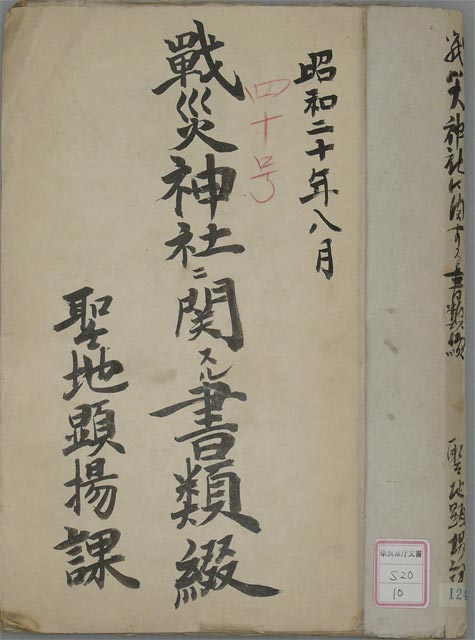 戦災神社に関する書類綴
聖地顕揚課
奈良県庁文書
S20
10
124
昭和二十年八月
四十号
戰災神社ニ関スル書類綴
聖地顕揚課